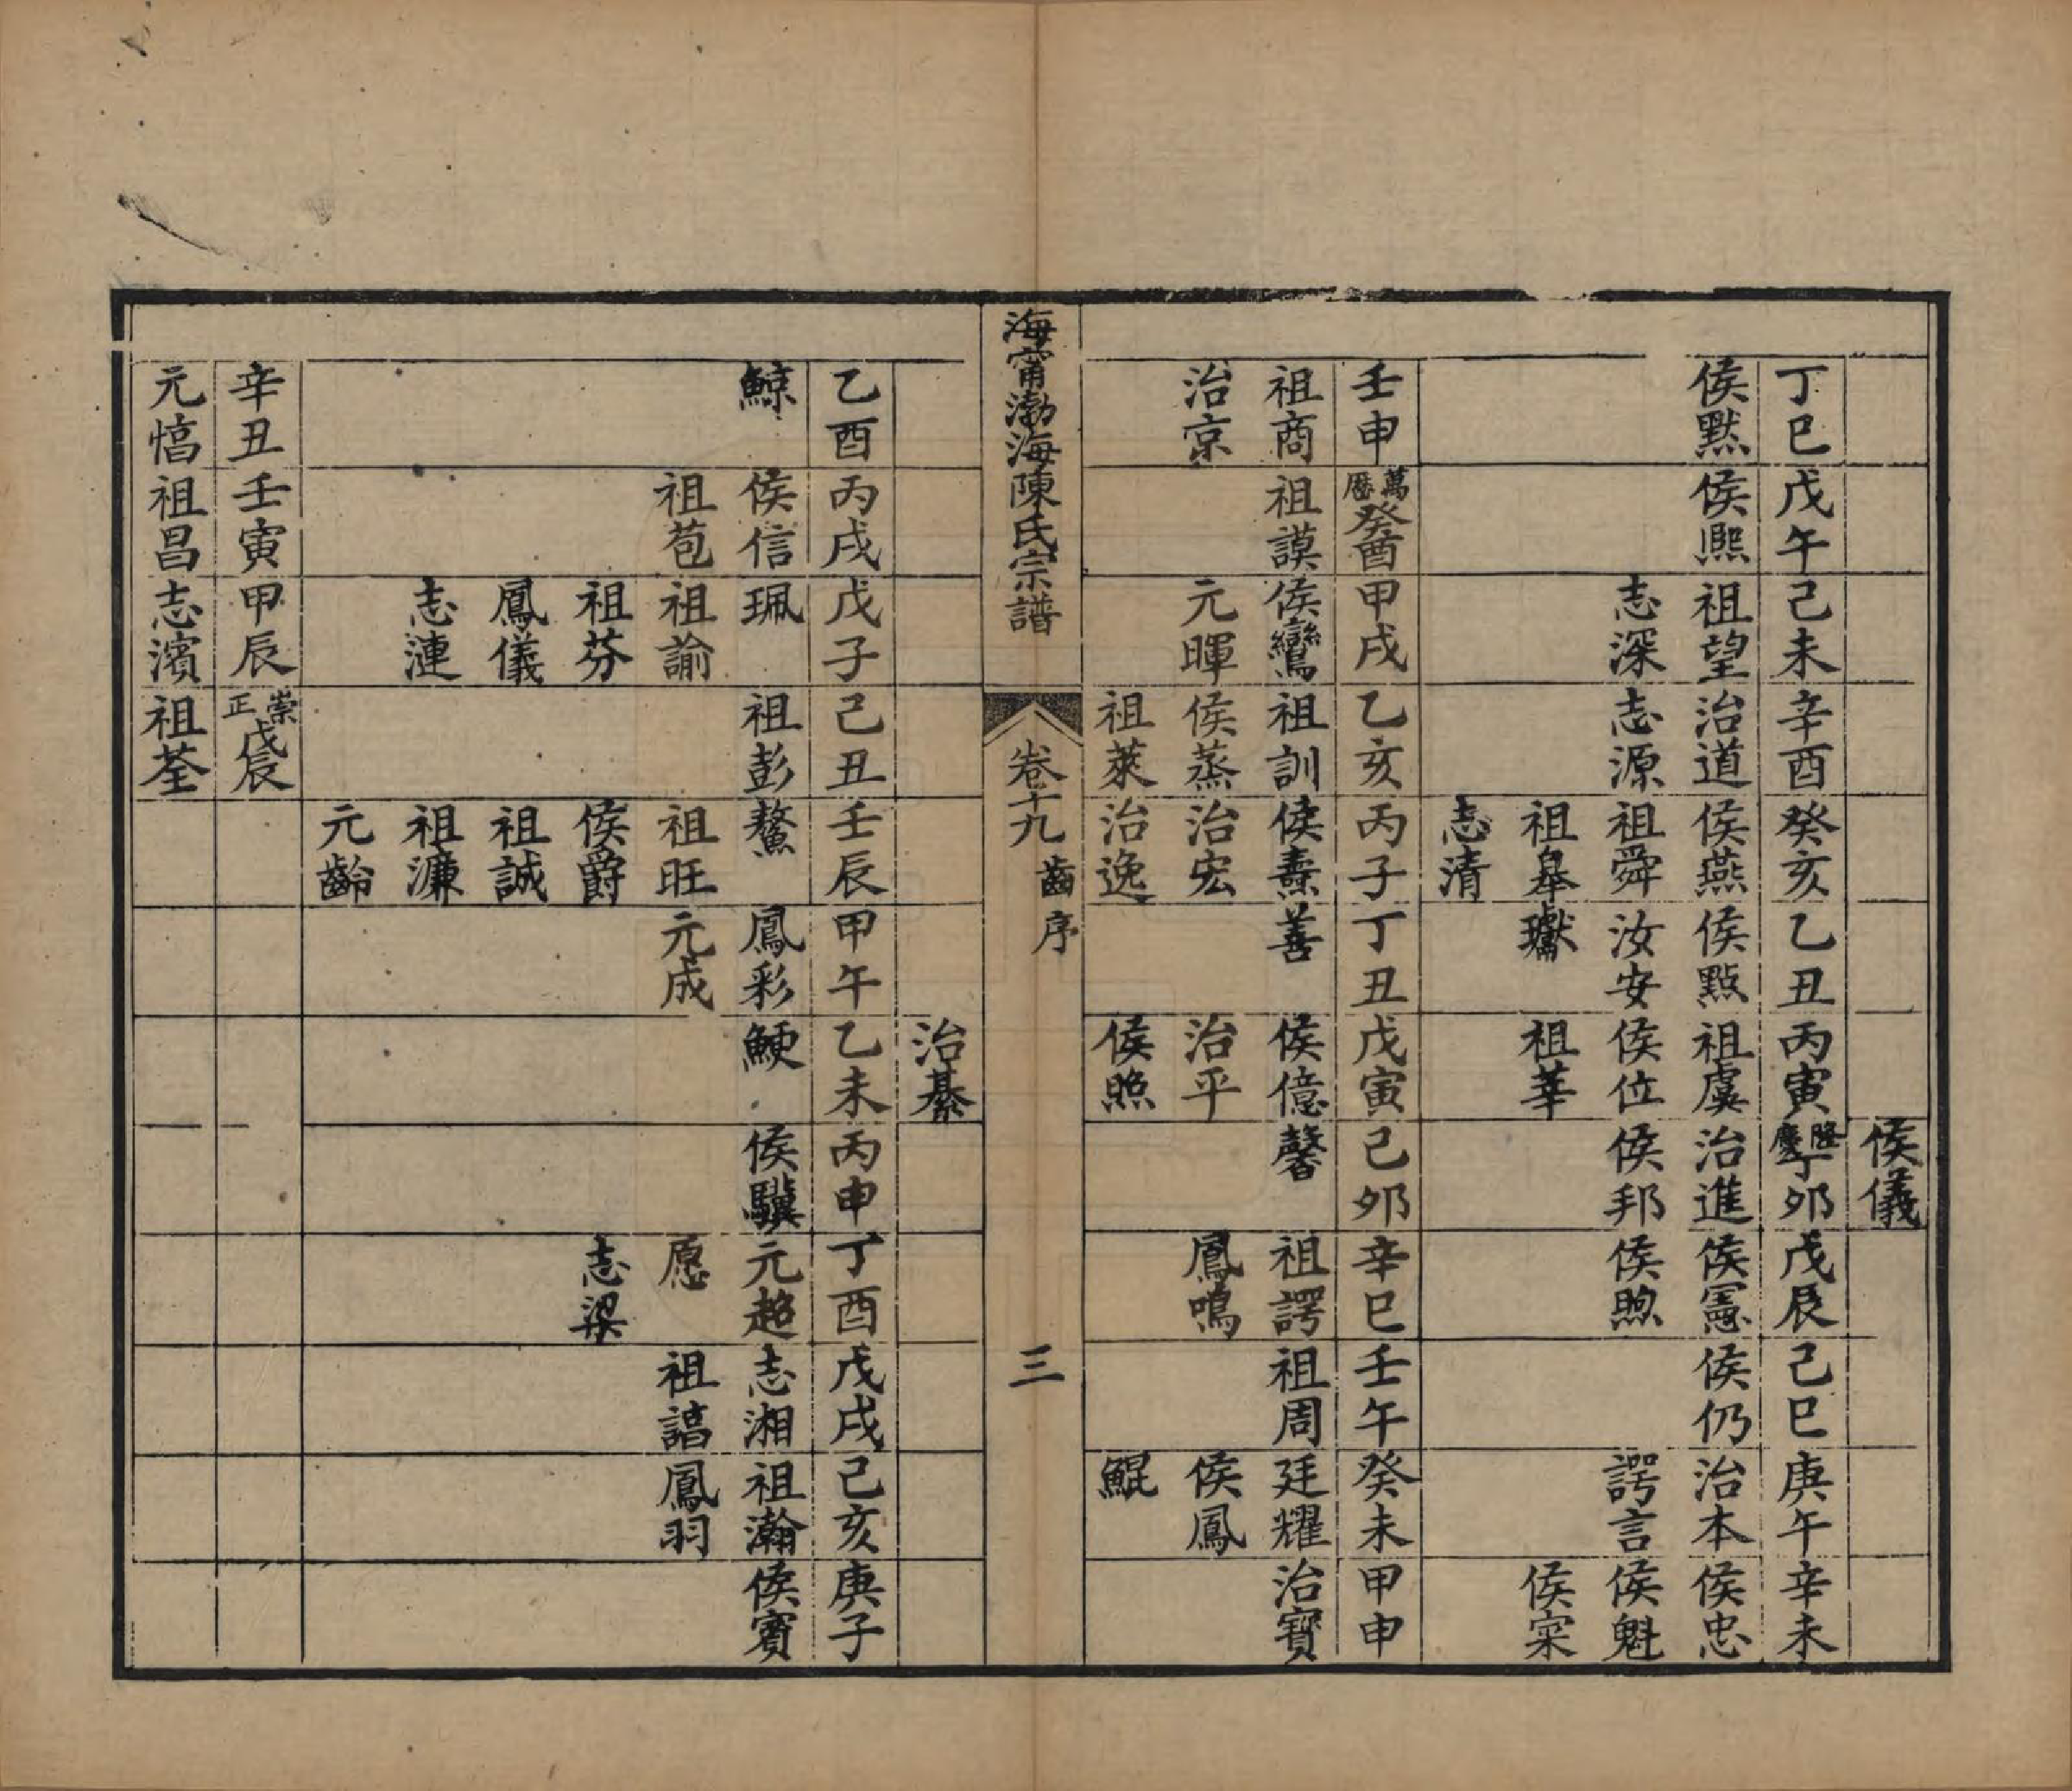 侯儀
丁巳 戊午 己未 辛酉 癸亥 乙丑 丙寅 隆慶丁卯 戊辰 己巳 庚午 辛未
侯黙 侯熈 祖望 治道 侯燕 侯點 祖虞 治進 侯憲 侯仍 治本 侯忠
志深 志源 祖舜 汝安 侯位 侯邦 侯煦 諤言 侯魁
祖皋 瓛 祖華 侯寀
志清
壬申 萬曆癸酉 甲戌 乙亥 丙子 丁丑 戊寅 己卯 辛巳 壬午 癸未 甲申
祖商 祖謨 侯鸞 祖訓 侯燾 善 侯億 馨 祖諤 祖周 廷耀 治寶
治京 元暉 侯蒸 治宏 治平 鳳鳴 侯鳳
祖萊 治逸 侯照 鯤
海甯渤海陳氏宗譜 卷十九 齒序 三
治綦
乙酉 丙戌 戊子 己丑 壬辰 甲午 乙未 丙申 丁酉 戊戌 己亥 庚子
鯨 侯信 珮 祖彭 鰲 鳳彩 鯁 侯驥 元超 志湘 祖瀚 侯賓
祖苞 祖諭 祖旺 元成 愿 祖誥 鳳羽
祖芬 侯爵 志梁
鳳儀 祖誠
志漣 祖濂
元齡
辛丑 壬寅 甲辰 崇正戊辰
元愭 祖昌 志濱 祖荃